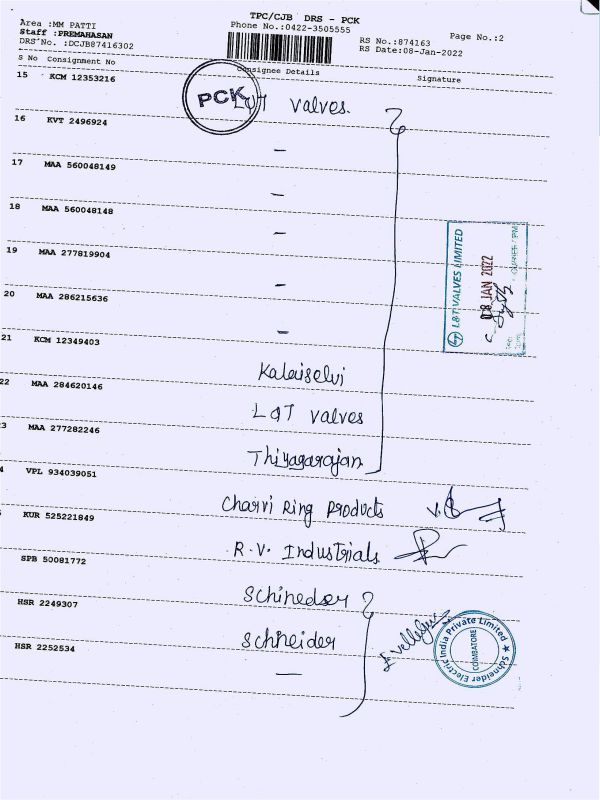 TPC/CJB DRS - PCK
Area :MM PATTI
Phone No.:0422-3505555
Page No.:2
Staff :PREMAHASAN
RS No.:874163
DRS No. :DCJB87416302
RS Date:08-Jan-2022
S No Consignment No Consignee Details Signature
15 KCM 12353216
PCK
L&T valves.
16 KVT 2496924
–
17 MAA 560048149
–
18 MAA 560048148
–
19 MAA 277819904
–
20 MAA 286215636
–
L&T VALVES LIMITED
08 JAN 2022
21 KCM 12349403
Kalaiselvi
22 MAA 284620146
L&T valves
3 MAA 277282246
Thiyagarajan
4 VPL 934039051
Charvi Ring Products
KUR 525221849
R.V. Industrials
SPB 50081772
Schineder
HSR 2249307
Schneider
HSR 2252534
—
Schneider Electric India Private Limited ★
COIMBATORE